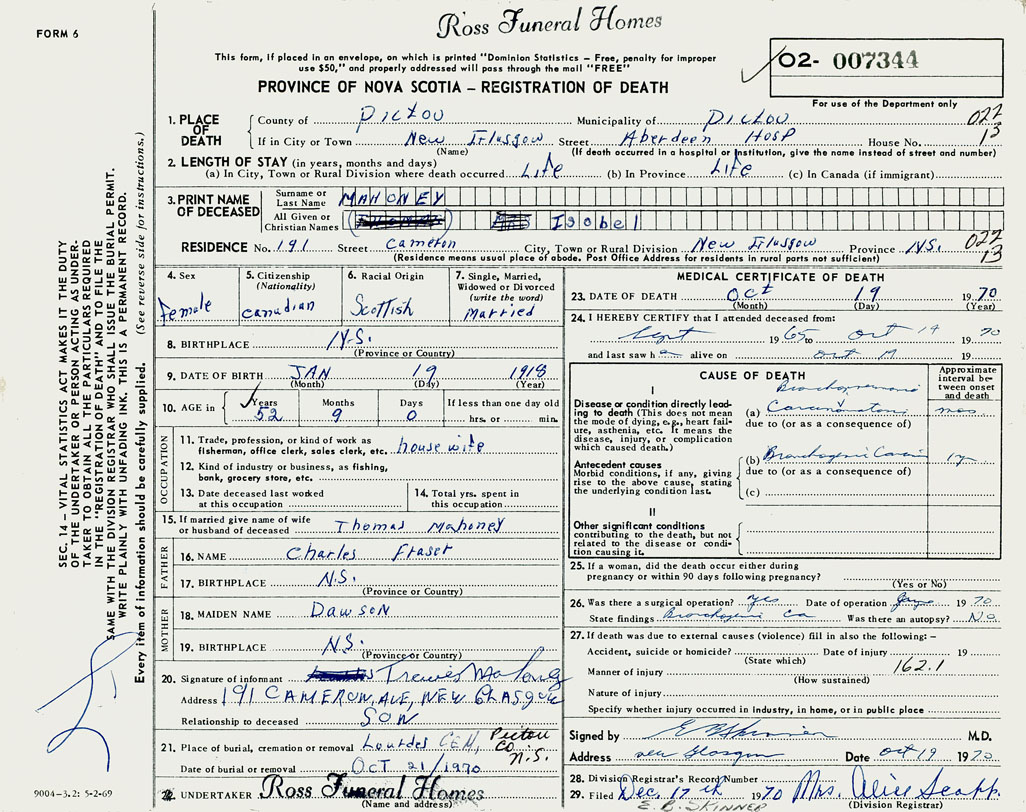 Ross Funeral Homes
FORM 6
This form, if placed in an envelope, on which is printed "Dominion Statistics – Free, penalty for improper
use $50," and properly addressed will pass through the mail "FREE"
PROVINCE OF NOVA SCOTIA – REGISTRATION OF DEATH
02- 007344
For use of the Department only
1. PLACE OF DEATH
County of Pictou Municipality of Pictou 022
If in City or Town New Glasgow Street Aberdeen Hosp House No. 13
(Name) (If death occurred in a hospital or institution, give the name instead of street and number)
2. LENGTH OF STAY (in years, months and days)
(a) In City, Town or Rural Division where death occurred Life (b) In Province Life (c) In Canada (if immigrant)
3. PRINT NAME OF DECEASED
Surname or Last Name MAHONEY
All Given or Christian Names Isobel
RESIDENCE No. 191 Street Cameron City, Town or Rural Division New Glasgow Province N.S. 022 13
(Residence means usual place of abode. Post Office Address for residents in rural parts not sufficient)
4. Sex
Female
5. Citizenship (Nationality)
Canadian
6. Racial Origin
Scottish
7. Single, Married, Widowed or Divorced (write the word)
Married
8. BIRTHPLACE N.S.
(Province or Country)
9. DATE OF BIRTH JAN 19 1918
(Month) (Day) (Year)
10. AGE in Years 52 Months 9 Days 0 If less than one day old hrs. or min.
OCCUPATION
11. Trade, profession, or kind of work as
fisherman, office clerk, sales clerk, etc. house wife
12. Kind of industry or business, as fishing,
bank, grocery store, etc.
13. Date deceased last worked at this occupation
14. Total yrs. spent in this occupation
15. If married give name of wife
or husband of deceased Thomas Mahoney
FATHER
16. NAME Charles Fraser
17. BIRTHPLACE N.S.
(Province or Country)
MOTHER
18. MAIDEN NAME Dawson
19. BIRTHPLACE N.S.
(Province or Country)
20. Signature of informant
Address 191 CAMERON, AVE, NEW GLASGOW
Relationship to deceased SON
21. Place of burial, cremation or removal Lourdes CEM, Pictou Co. N.S.
Date of burial or removal Oct 21/1970
22. UNDERTAKER Ross Funeral Homes
(Name and address)
MEDICAL CERTIFICATE OF DEATH
23. DATE OF DEATH Oct 19 1970
(Month) (Day) (Year)
24. I HEREBY CERTIFY that I attended deceased from:
Sept 1965 to Oct 19 70
and last saw h alive on Oct 19 19
CAUSE OF DEATH
Approximate interval between onset and death
I
Disease or condition directly leading to death (This does not mean the mode of dying, e.g., heart failure, asthenia, etc. It means the disease, injury, or complication which caused death.)
(a)
due to (or as a consequence of)
mos.
Antecedent causes
Morbid conditions, if any, giving rise to the above cause, stating the underlying condition last.
(b) Bronchogenic
due to (or as a consequence of)
(c)
II
Other significant conditions
contributing to the death, but not related to the disease or condition causing it.
25. If a woman, did the death occur either during
pregnancy or within 90 days following pregnancy?
(Yes or No)
26. Was there a surgical operation? yes Date of operation 1970
State findings Bronchogenic Ca Was there an autopsy? No
27. If death was due to external causes (violence) fill in also the following: –
Accident, suicide or homicide? Date of injury 19
(State which)
Manner of injury 162.1
(How sustained)
Nature of injury
Specify whether injury occurred in industry, in home, or in public place
Signed by E B Skinner M.D.
Address New Glasgow Date Oct 19 1970
28. Division Registrar's Record Number
29. Filed Dec. 17th 1970 Mrs. Alice
E. B. SKINNER (Division Registrar)
SEC. 14 – VITAL STATISTICS ACT MAKES IT THE DUTY
OF THE UNDERTAKER OR PERSON ACTING AS UNDER-
TAKER TO OBTAIN ALL THE PARTICULARS REQUIRED
IN THE "REGISTRATION OF DEATH" AND TO FILE THE
SAME WITH THE DIVISION REGISTRAR WHO SHALL ISSUE THE BURIAL PERMIT.
WRITE PLAINLY WITH UNFADING INK. THIS IS A PERMANENT RECORD.
Every item of information should be carefully supplied. (See reverse side for instructions.)
9004-3.2: 5-2-69